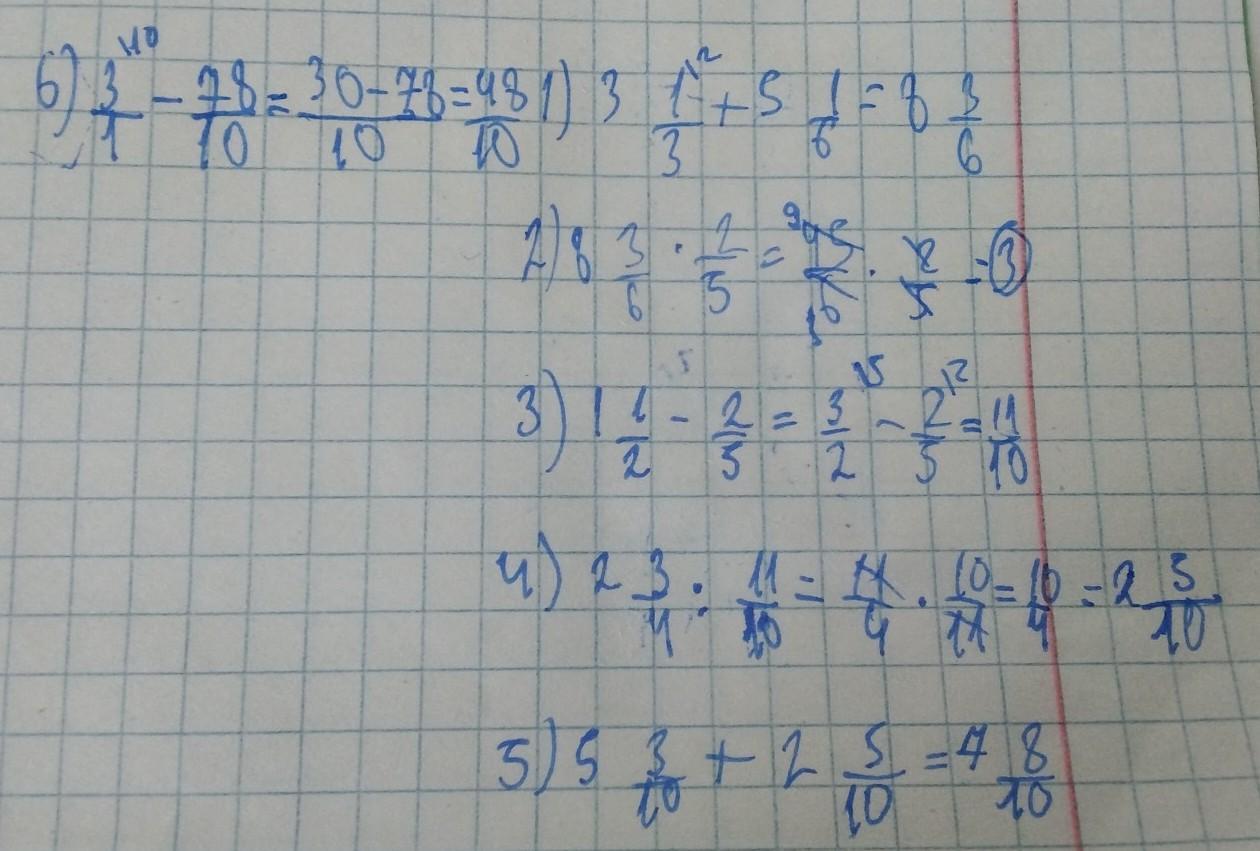 6) 3/1 \10 - 78/10 = 30-78/10 = 48/10
1) 3 1/3 \2 + 5 1/6 = 8 3/6
2) 8 3/6 · 2/5 = · 2/5 = 3
3) 1 1/2 - 2/5 = 3/2 \5 - 2/5 \2 = 11/10
4) 2 3/4 : 11/10 = 11/4 · 10/11 = 10/4 = 2 5/10
5) 5 3/10 + 2 5/10 = 7 8/10